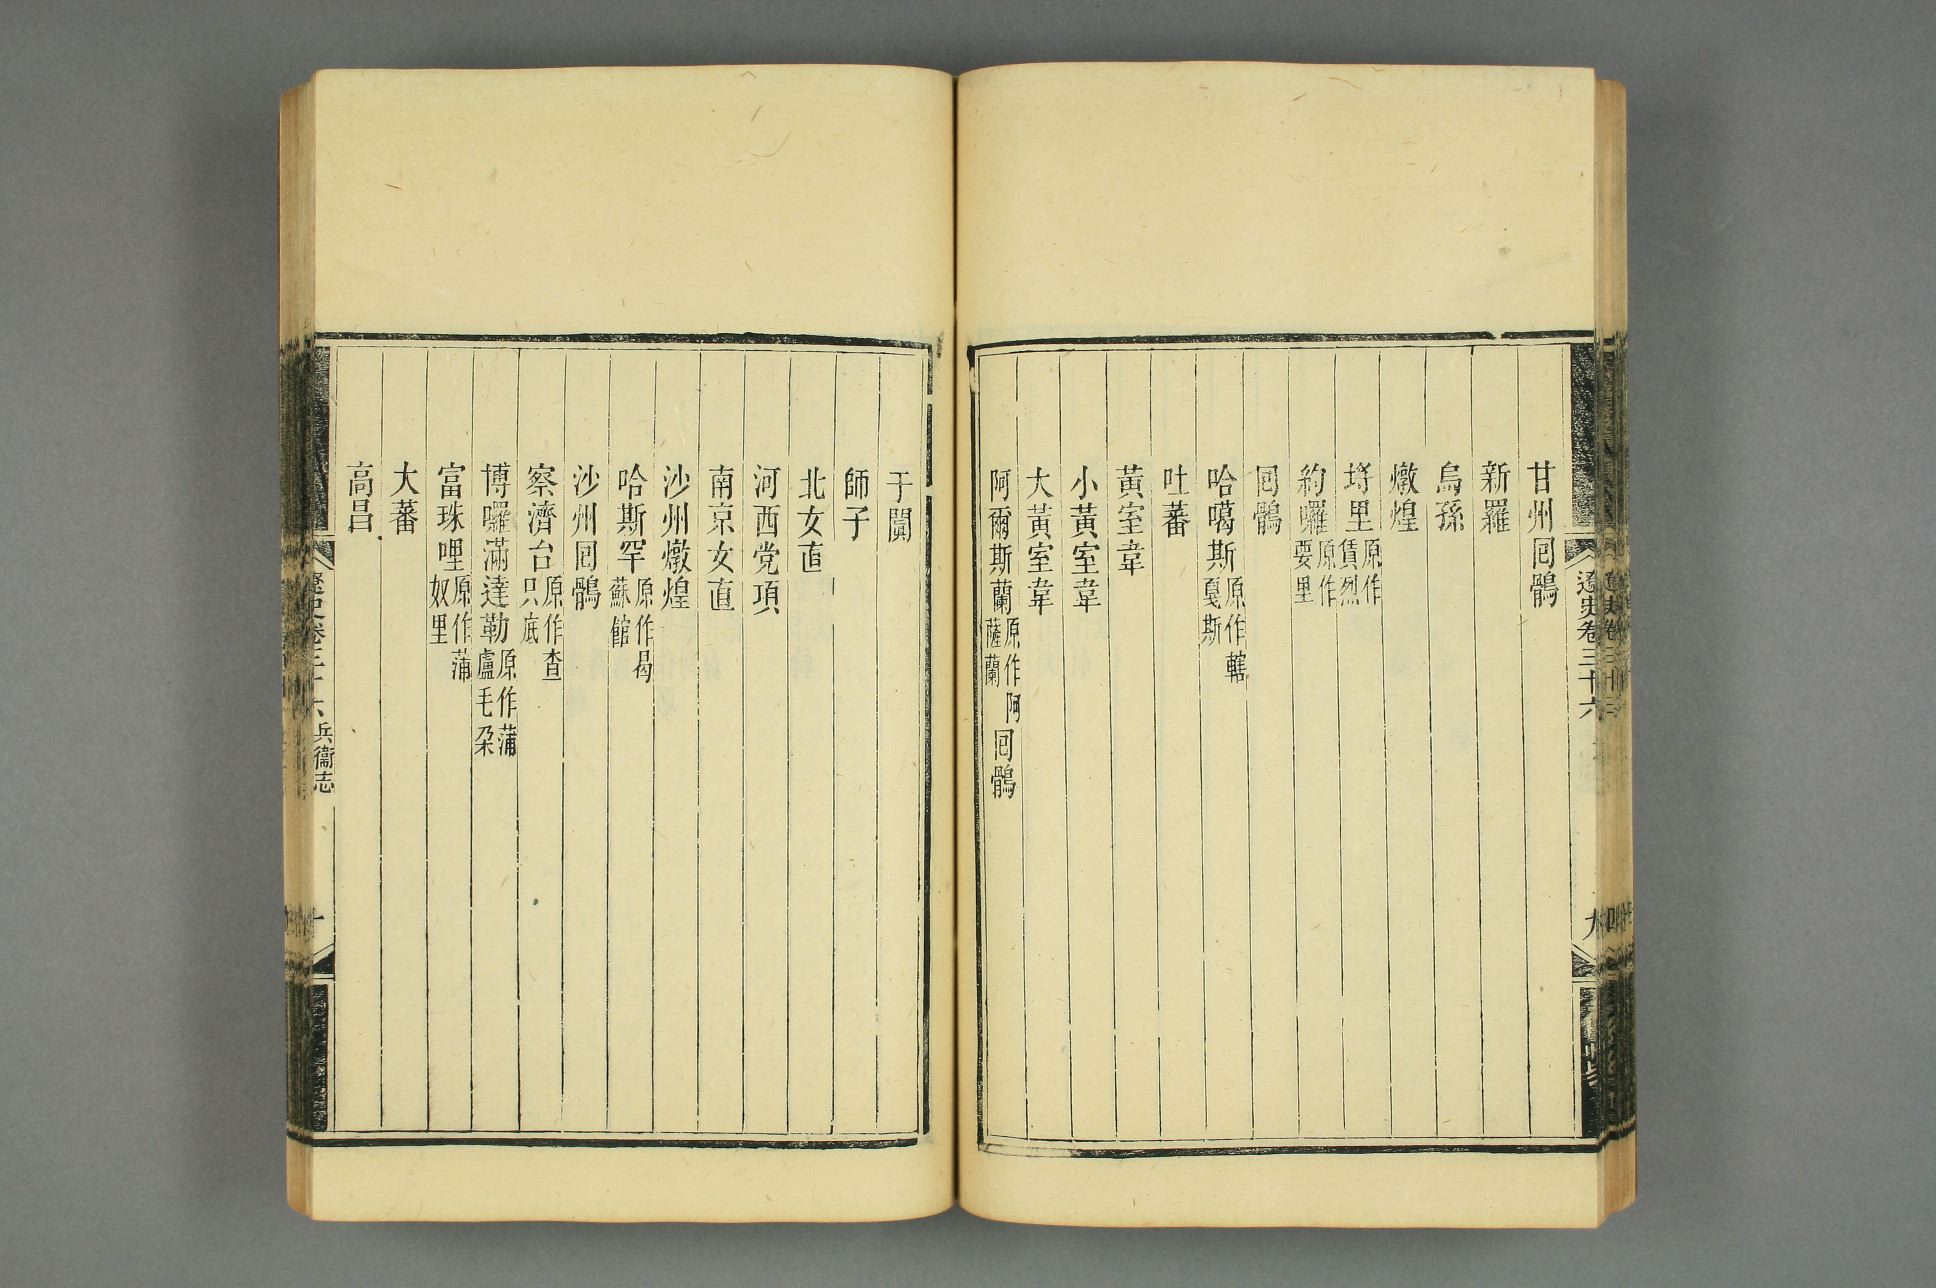 遼史卷三十六
九
甘州回鶻
新羅
烏孫
燉煌
塔里原作賃烈
約囉原作要里
回鶻
哈噶斯原作轄戛斯
吐蕃
黃室韋
小黃室韋
大黃室韋
阿爾斯蘭原作阿薩蘭回鶻
于闐
師子
北女直
河西党項
南京女直
沙州燉煌
哈斯罕原作曷蘇館
沙州回鶻
察濟台原作查只底
博囉滿達勒原作蒲盧毛朶
富珠哩原作蒲奴里
大蕃
高昌
遼史卷三十六 兵衞志
十